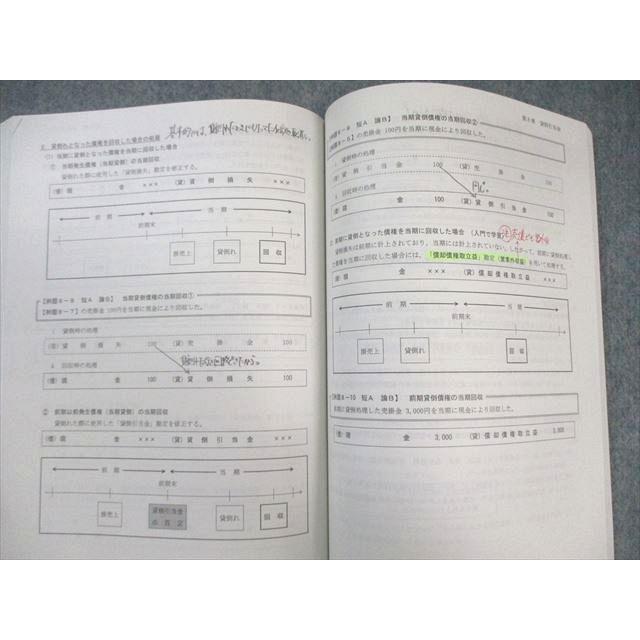 2. 貸倒れとなった債権を回収した場合の処理
(1) 当期に貸倒れとなった債権を当期に回収した場合
① 当期発生債権(当期貸倒)の当期回収
貸倒れた際に使用した「貸倒損失」勘定を修正する。
(借) 現 金 ××× (貸) 貸 倒 損 失 ×××
前 期 当 期
前期末
掛売上 貸倒れ 回 収
【例題8-8 短A 論B】 当期貸倒債権の当期回収①
【例題8-7】の売掛金 100円を当期に現金により回収した。
1 貸倒時の処理
(借) 貸 倒 損 失 100 (貸) 売 掛 金 100
2 回収時の処理
(借) 現 金 100 (貸) 貸 倒 損 失 100
② 前期以前発生債権(当期貸倒)の当期回収
貸倒れた際に使用した「貸倒引当金」勘定を修正する。
(借) 現 金 ××× (貸) 貸 倒 引 当 金 ×××
前 期 当 期
前期末
掛売上 貸倒引当金の設定 貸倒れ 回 収
第8章 貸倒引当金
【例題8-9 短A 論B】 当期貸倒債権の当期回収②
の売掛金 100円を当期に現金により回収した。
1 貸倒時の処理
(借) 貸 倒 引 当 金 100 (貸) 売 掛 金 100
2 回収時の処理
(借) 現 金 100 (貸) 貸 倒 引 当 金 100
同じ。
前期に貸倒となった債権を当期に回収した場合 (入門で学習)
貸倒損失は前期に計上されており、当期には計上されていない。したがって、前期に貸倒処理し
た債権を当期に回収した場合には、「償却債権取立益」勘定(営業外収益)を用いて処理する。
(借) 現 金 ××× (貸) 償 却 債 権 取 立 益 ×××
前 期 当 期
前期末
掛売上 貸倒れ 回 収
【例題8-10 短A 論B】 前期貸倒債権の当期回収
前期に貸倒処理した売掛金 3,000円を当期に現金により回収した。
(借) 現 金 3,000 (貸) 償 却 債 権 取 立 益 3,000